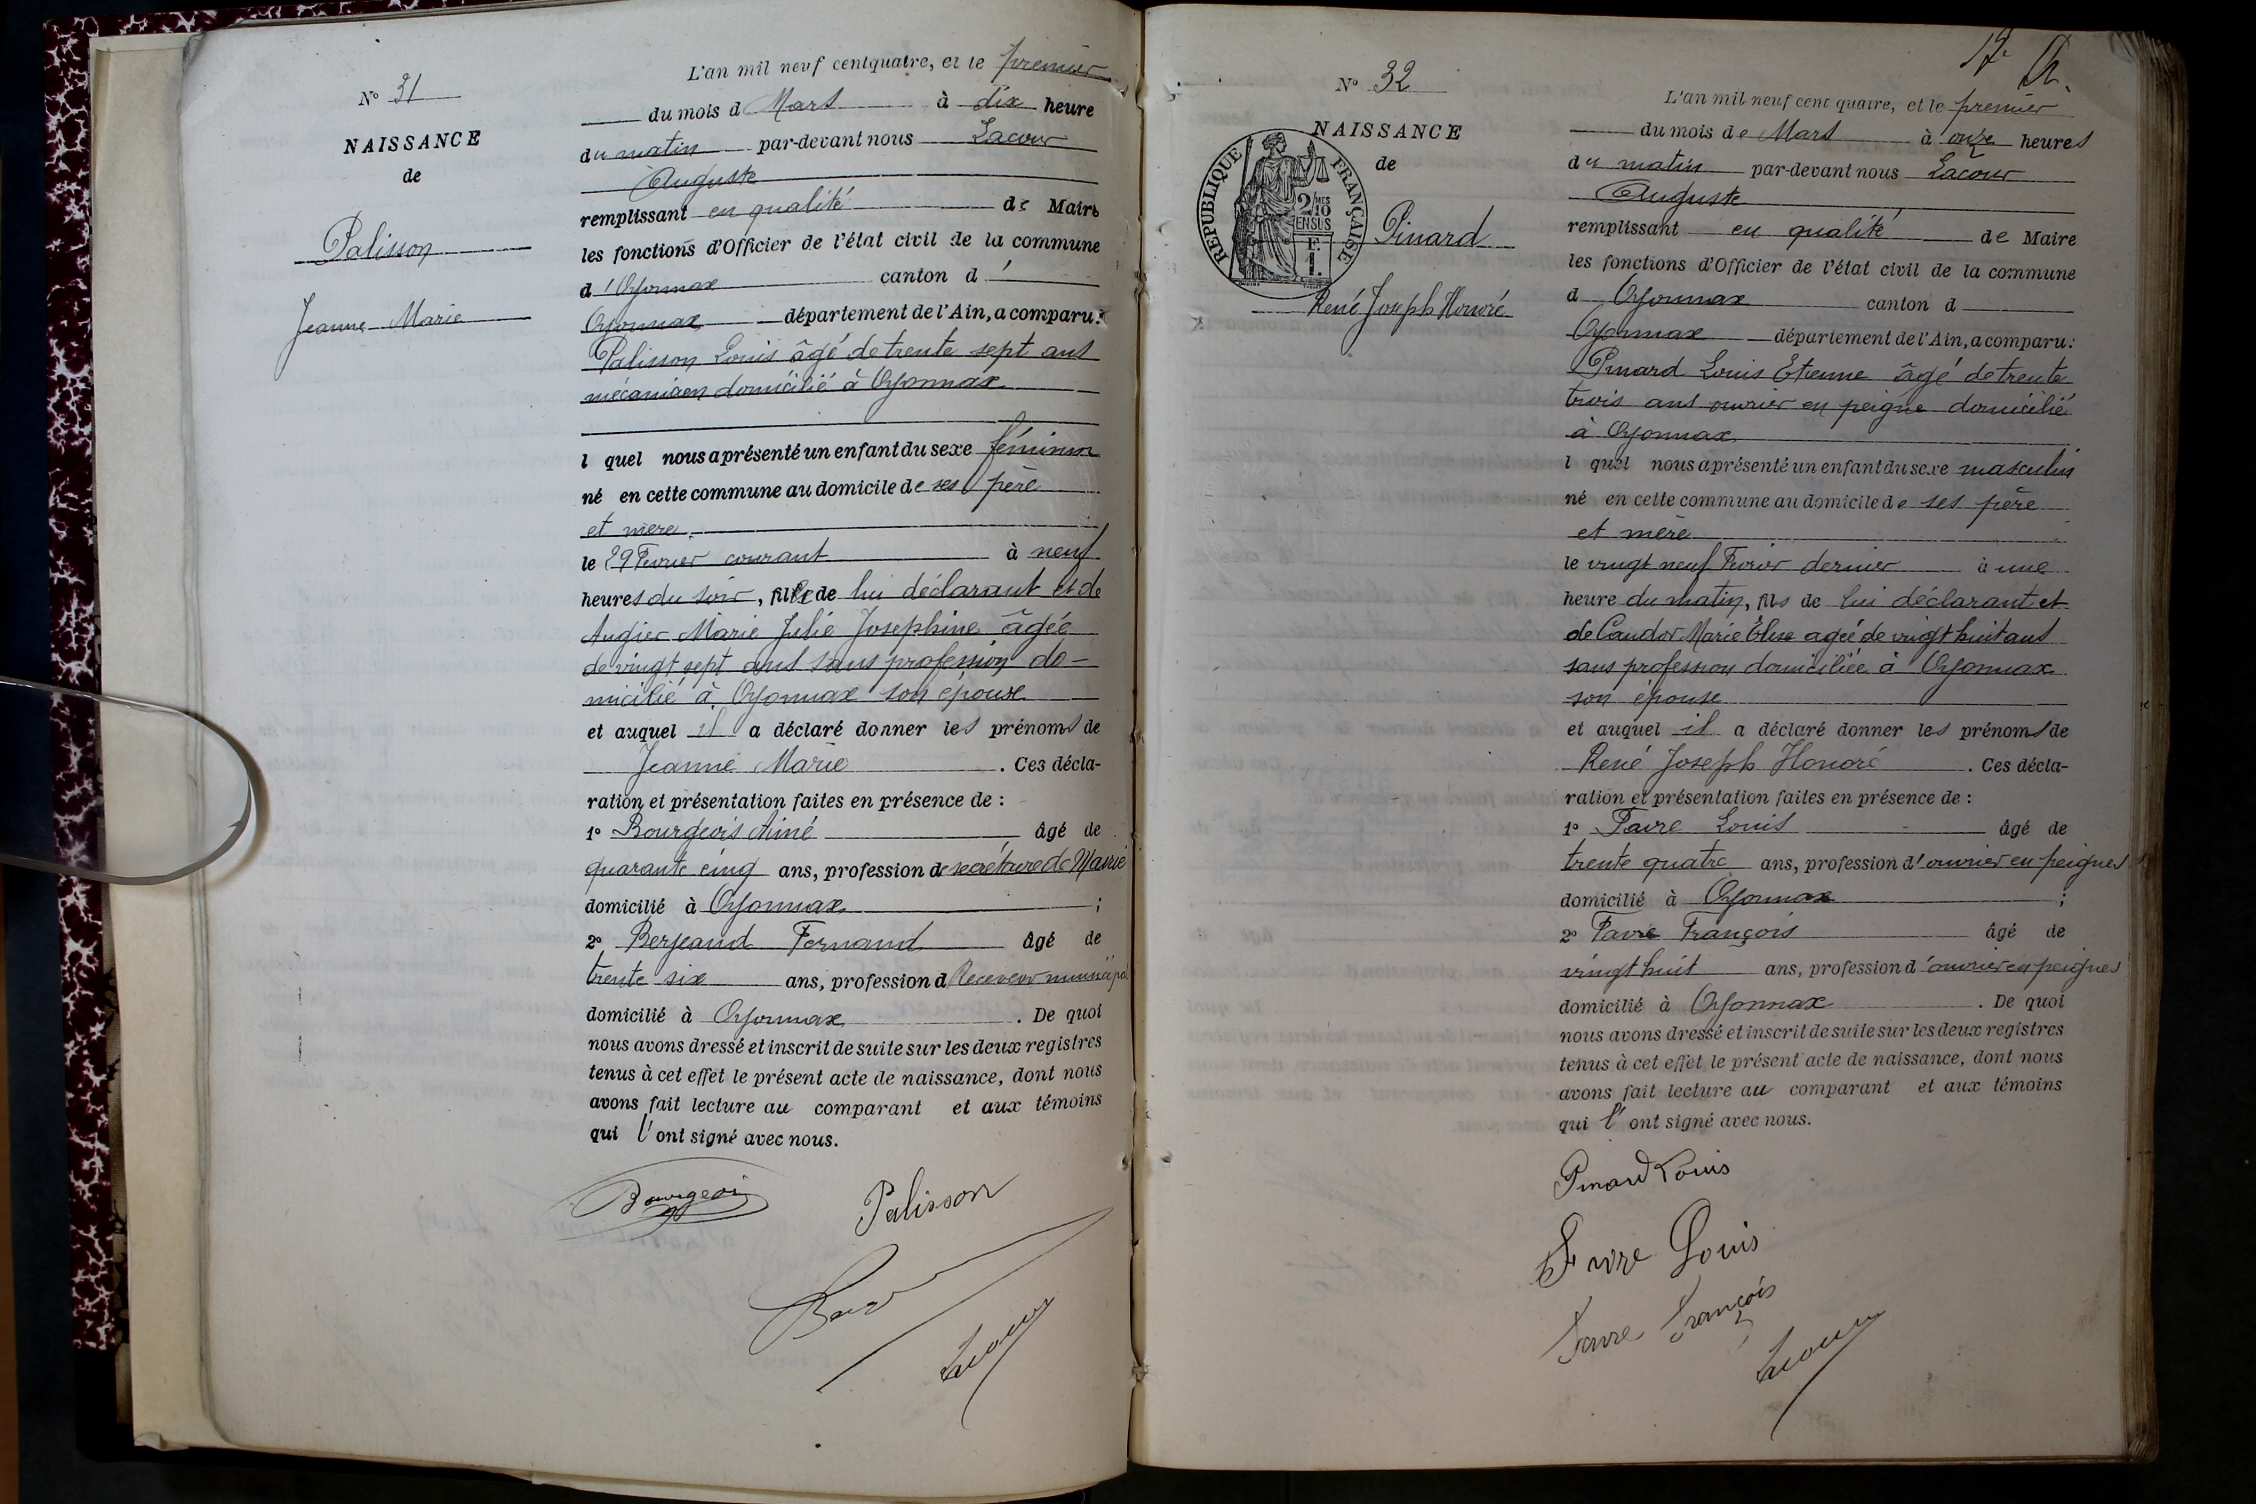 N° 31
NAISSANCE
de
Palisson
Jeanne Marie
L'an mil neuf cent quatre, et le premier
du mois d Mars à dix heure
du matin par-devant nous Lacour
Auguste
remplissant en qualité de Maire
les fonctions d'Officier de l'état civil de la commune
d'Oyonnax canton d'
Oyonnax département de l'Ain, a comparu:
Palisson Louis âgé de trente sept ans
mécanicien domicilié à Oyonnax
l quel nous a présenté un enfant du sexe féminin
né en cette commune au domicile de ses père
et mère
le 29 Fevrier courant à neuf
heures du soir, fille de lui déclarant et de
Augier Marie Julie Josephine âgée
de vingt sept ans sans profession do-
micilié à Oyonnax son épouse
et auquel il a déclaré donner les prénoms de
Jeanne Marie . Ces décla-
ration et présentation faites en présence de :
1° Bourgeois Aimé âgé de
quarante cinq ans, profession de secrétaire de Mairie
domicilié à Oyonnax ;
2° Berjeaud Fernand âgé de
trente six ans, profession d Receveur municipal
domicilié à Oyonnax . De quoi
nous avons dressé et inscrit de suite sur les deux registres
tenus à cet effet le présent acte de naissance, dont nous
avons fait lecture au comparant et aux témoins
qui l'ont signé avec nous.
Bourgeois
Palisson
Lacour
17
N° 32
NAISSANCE
de
REPUBLIQUE FRANÇAISE
2/10 MES
EN SUS
F.
1.
Pinard
René Joseph Honoré
L'an mil neuf cent quatre, et le premier
du mois de Mars à onze heures
du matin par-devant nous Lacour
Auguste
remplissant en qualité de Maire
les fonctions d'Officier de l'état civil de la commune
d Oyonnax canton d
Oyonnax département de l'Ain, a comparu:
Pinard Louis Etienne âgé de trente
trois ans ouvrier en peigne domicilié
à Oyonnax
l quel nous a présenté un enfant du sexe masculin
né en cette commune au domicile de ses père
et mère
le vingt neuf Fevrier dernier à une
heure du matin, fils de lui déclarant et
de Caudor Marie Élise agée de vingt huit ans
sans profession domiciliée à Oyonnax
son épouse
et auquel il a déclaré donner les prénoms de
René Joseph Honoré . Ces décla-
ration et présentation faites en présence de :
1° Favre Louis âgé de
trente quatre ans, profession d'ouvrier en peignes
domicilié à Oyonnax ;
2° Favre François âgé de
vingt huit ans, profession d'ouvrier en peignes
domicilié à Oyonnax . De quoi
nous avons dressé et inscrit de suite sur les deux registres
tenus à cet effet le présent acte de naissance, dont nous
avons fait lecture au comparant et aux témoins
qui l'ont signé avec nous.
Pinard Louis
Favre Louis
Favre François
Lacour